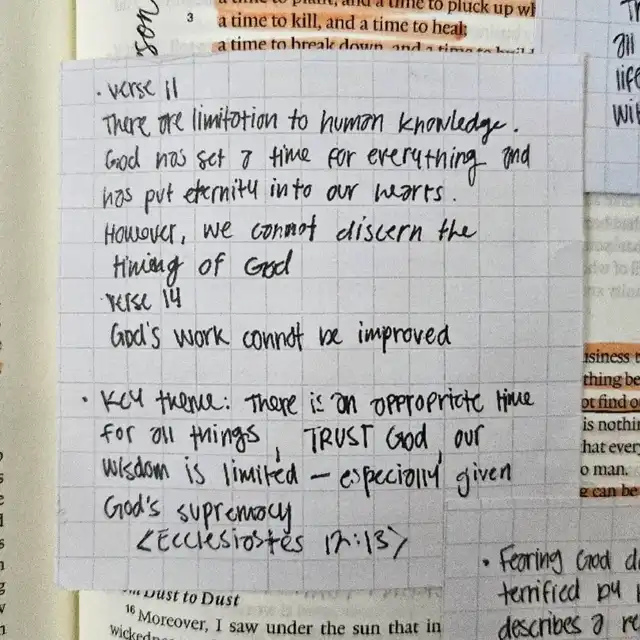 3 a time to kill, and a time to heal;
a time to break down, and a time to build
· verse 11
There are limitation to human knowledge.
God has set a time for everything and
has put eternity into our hearts.
However, we cannot discern the
timing of God
· verse 14
God's work connot be improved
· Key theme: There is an appropriate time
for all things, TRUST God, our
wisdom is limited – especially given
God's supremacy
<Ecclesiastes 12:13>
all
life
usiness
thing be
ot find o
is nothin
hat ever
o man.
g can be
· Fearing God
terrified by
describes a
Dust to Dust
16 Moreover, I saw under the sun that in